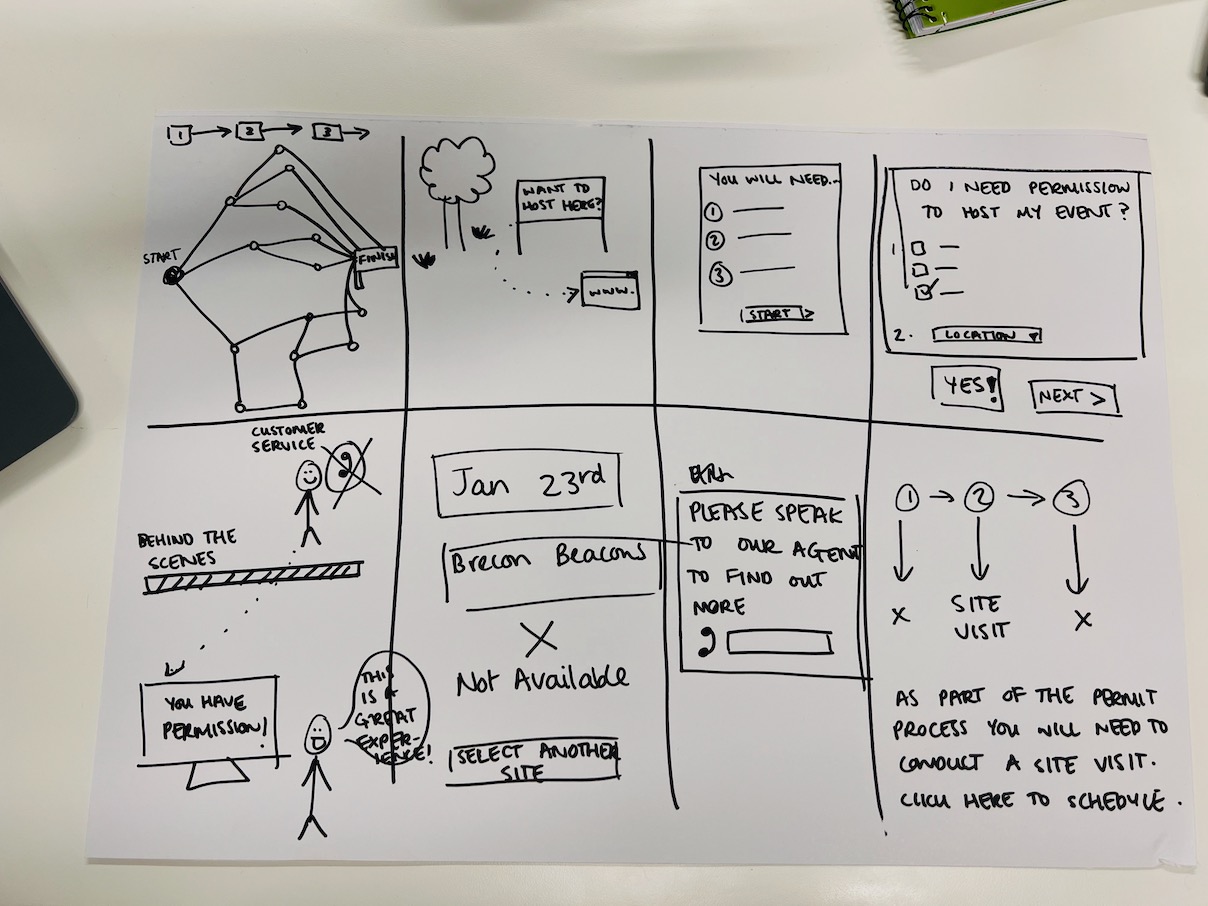 1 2 3
START
FINISH
WANT TO
HOST HERE?
WWW.
YOU WILL NEED...
1
2
3
START >
DO I NEED PERMISSION
TO HOST MY EVENT?
1
2. LOCATION
YES!
NEXT >
CUSTOMER
SERVICE
BEHIND THE
SCENES
YOU HAVE
PERMISSION!
THIS
IS A
GREAT
EXPER-
IENCE!
Jan 23rd
Brecon Beacons
X
Not Available
SELECT ANOTHER
SITE
PLEASE SPEAK
TO OUR AGENT
TO FIND OUT
MORE
1 2 3
X SITE X
VISIT
AS PART OF THE PERMIT
PROCESS YOU WILL NEED TO
CONDUCT A SITE VISIT.
CLICK HERE TO SCHEDULE.